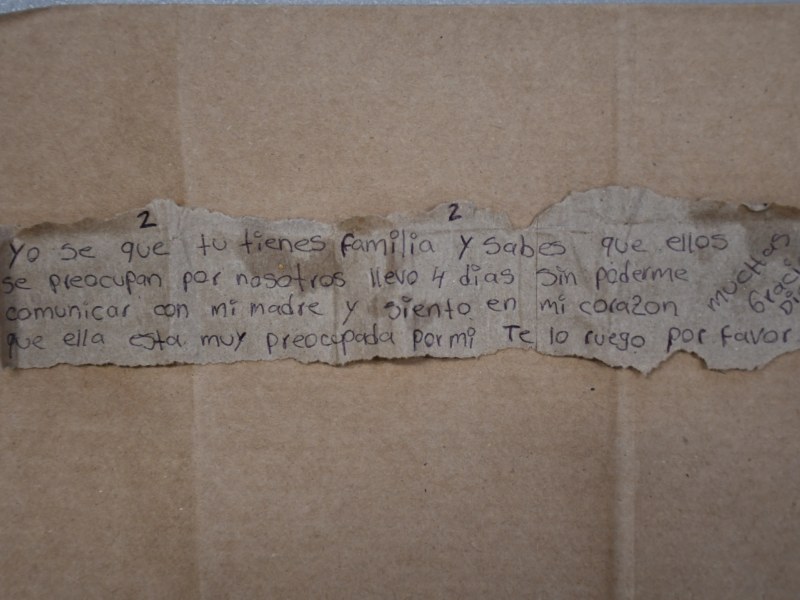 2 2
Yo se que tu tienes familia y sabes que ellos
se preocupan por nosotros llevo 4 dias sin poderme
comunicar con mi madre y siento en mi corazon
que ella esta muy preocupada por mi Te lo ruego por favor
MUCHAS
Graci
Di